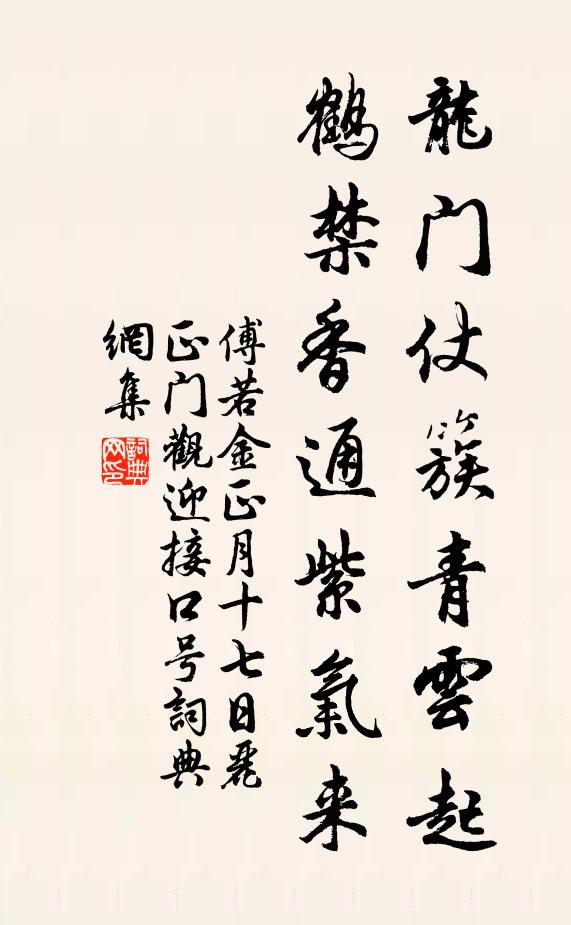 龍门仗簇青雲起
鶴禁香通紫氣来
傅若金正月十七日麗
正门觀迎接口号詞典
網集
詞典网印